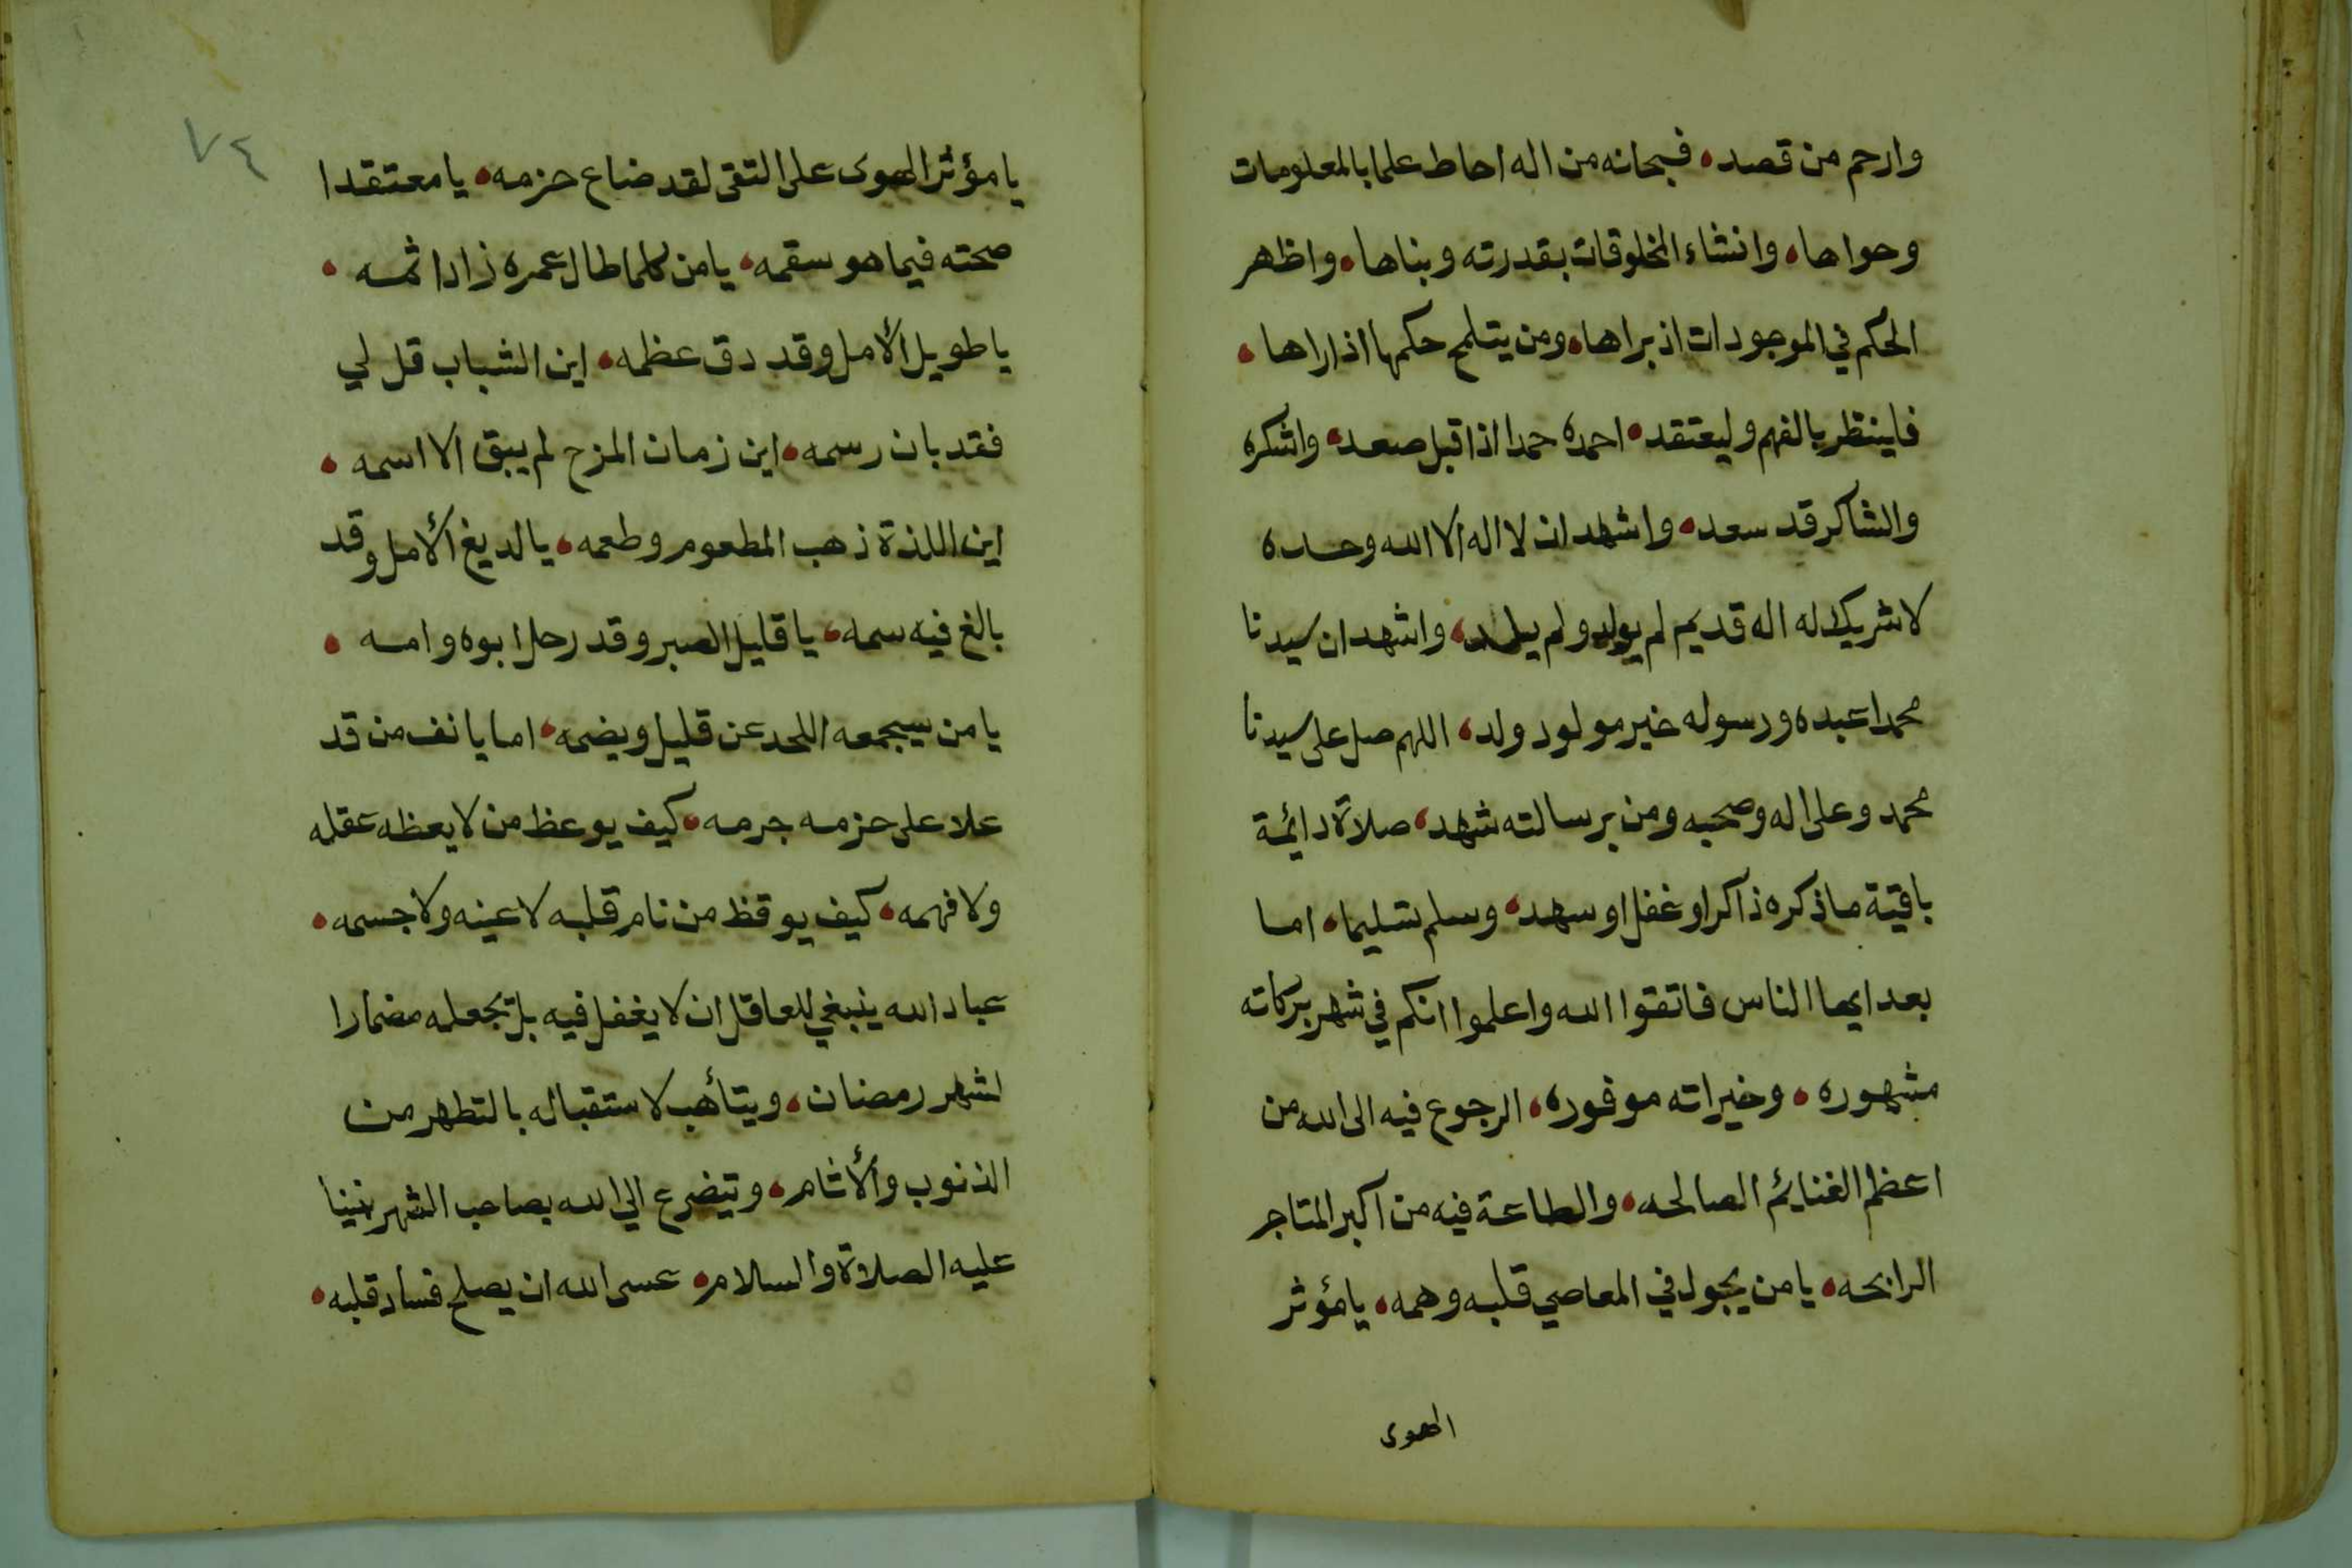 وارحم من قصد، فسبحانه من اله احاط علما بالمعلومات
وحواها، وانشاء المخلوقات بقدرته وبناها، واظهر
الحكم في الموجودات اذ براها، ومن يتلمح حكمها اذا راها،
فاينظر بالفهم وليعتقد، احمده حمدا اذا قبل صعد، واشكره
والشاكر قد سعد، واشهد ان لا اله الا الله وحده
لا شريك له اله قديم لم يولد ولم يلد، واشهد ان سيدنا
محمدا عبده ورسوله خير مولود ولد، اللهم صل على سيدنا
محمد وعلى اله وصحبه ومن برسالته شهد، صلاة دائمة
باقية ما ذكره ذاكر او غفل او سهد، وسلم تسليما، اما
بعد ايها الناس فاتقوا الله واعلموا انكم في شهر بركاته
مشهوره، وخيراته موفوره، الرجوع فيه الى الله من
اعظم الغنايئم الصالحه، والطاعة فيه من اكبر المتاجر
الرابحه، يا من يجول في المعاصي قلبه وهمه، يا مؤثر
الهوى
٧٤
يا مؤثر الهوى على التقى لقد ضاع حزمه، يا معتقدا
صحته فيما هو سقمه، يا من كلما طال عمره زاد اثمه،
يا طويل الأمل وقد دق عظمه، اين الشباب قل لي
فقد بان رسمه، اين زمان المزح لم يبق الا اسمه،
اين اللذة ذهب المطعوم وطعمه، يا لديغ الأمل وقد
بالغ فيه سمه، يا قليل الصبر وقد رحل ابوه وامه،
يا من سيجمعه اللحد عن قليل ويضمه، اما يانف من قد
علا على حزمه جرمه، كيف يوعظ من لا يعظه عقله
ولا فهمه، كيف يوقظ من نام قلبه لا عينه ولا جسمه،
عباد الله ينبغي للعاقل ان لا يغفل فيه بل يجعله مضمارا
لشهر رمضان، ويتأهب لاستقباله بالتطهر من
الذنوب والأثام، ويتضرع الي الله بصاحب الشهر نبينا
عليه الصلاة والسلام، عسى الله ان يصلح فساد قلبه،